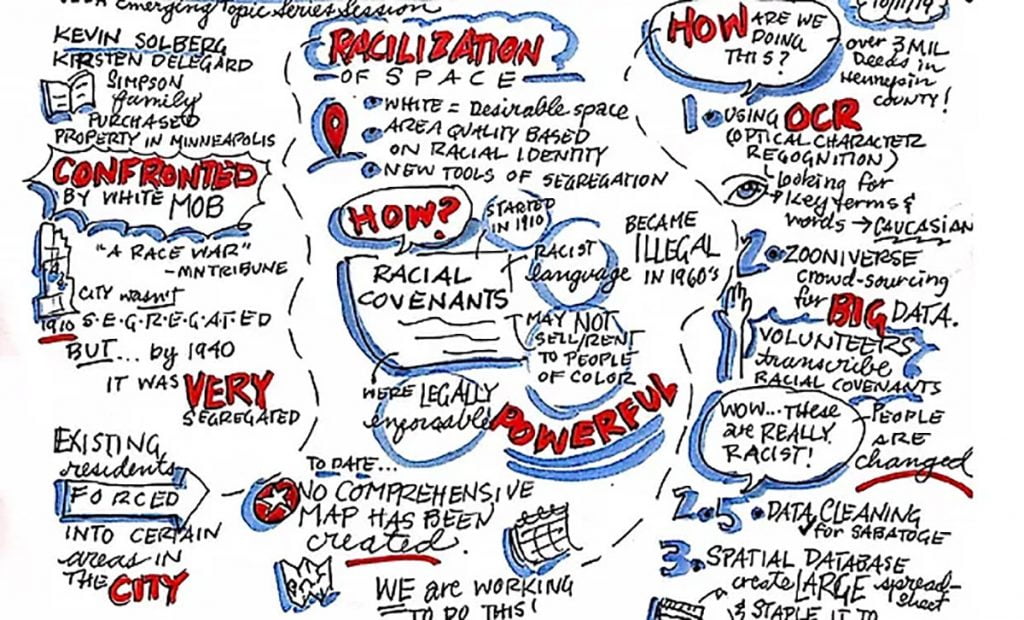 emerging topic series session
KEVIN SOLBERG
KIRSTEN DELEGARD
SIMPSON
family
PURCHASED
PROPERTY IN MINNEAPOLIS
CONFRONTED
BY WHITE MOB
"A RACE WAR"
-MN TRIBUNE
CITY wasn't
1910 S.E.G.R.E.G.A.T.E.D
BUT... by 1940
IT WAS VERY
SEGREGATED
EXISTING
residents
FORCED
INTO CERTAIN
areas IN
THE CITY
RACILIZATION
OF SPACE
WHITE = Desirable space
AREA QUALITY BASED
ON RACIAL IDENTITY
NEW TOOLS OF SEGREGATION
HOW?
STARTED
IN 1910
RACIAL
COVENANTS
RACIST
language
BECAME
ILLEGAL
IN 1960's
MAY NOT
SELL/RENT
TO PEOPLE
OF COLOR
WERE LEGALLY
enforsable
POWERFUL
TO DATE...
NO COMPREHENSIVE
MAP HAS BEEN
created.
WE are WORKING
TO DO THIS!
10/11/19
HOW ARE WE
DOING
THIS?
over 3 MIL
Deeds in
Hennepin
COUNTY!
1. USING OCR
(OPTICAL CHARACTER
RECOGNITION)
looking for
Key terms &
words → CAUCASIAN
2. ZOONIVERSE
crowd-sourcing
for BIG DATA.
VOLUNTEERS
transcribe
RACIAL COVENANTS
WOW... these
are REALLY
RACIST!
PEOPLE
ARE
changed
2.5. DATA CLEANING
for SABATOGE
3. SPATIAL DATABASE
create LARGE spread-
sheet
& STAPLE IT TO